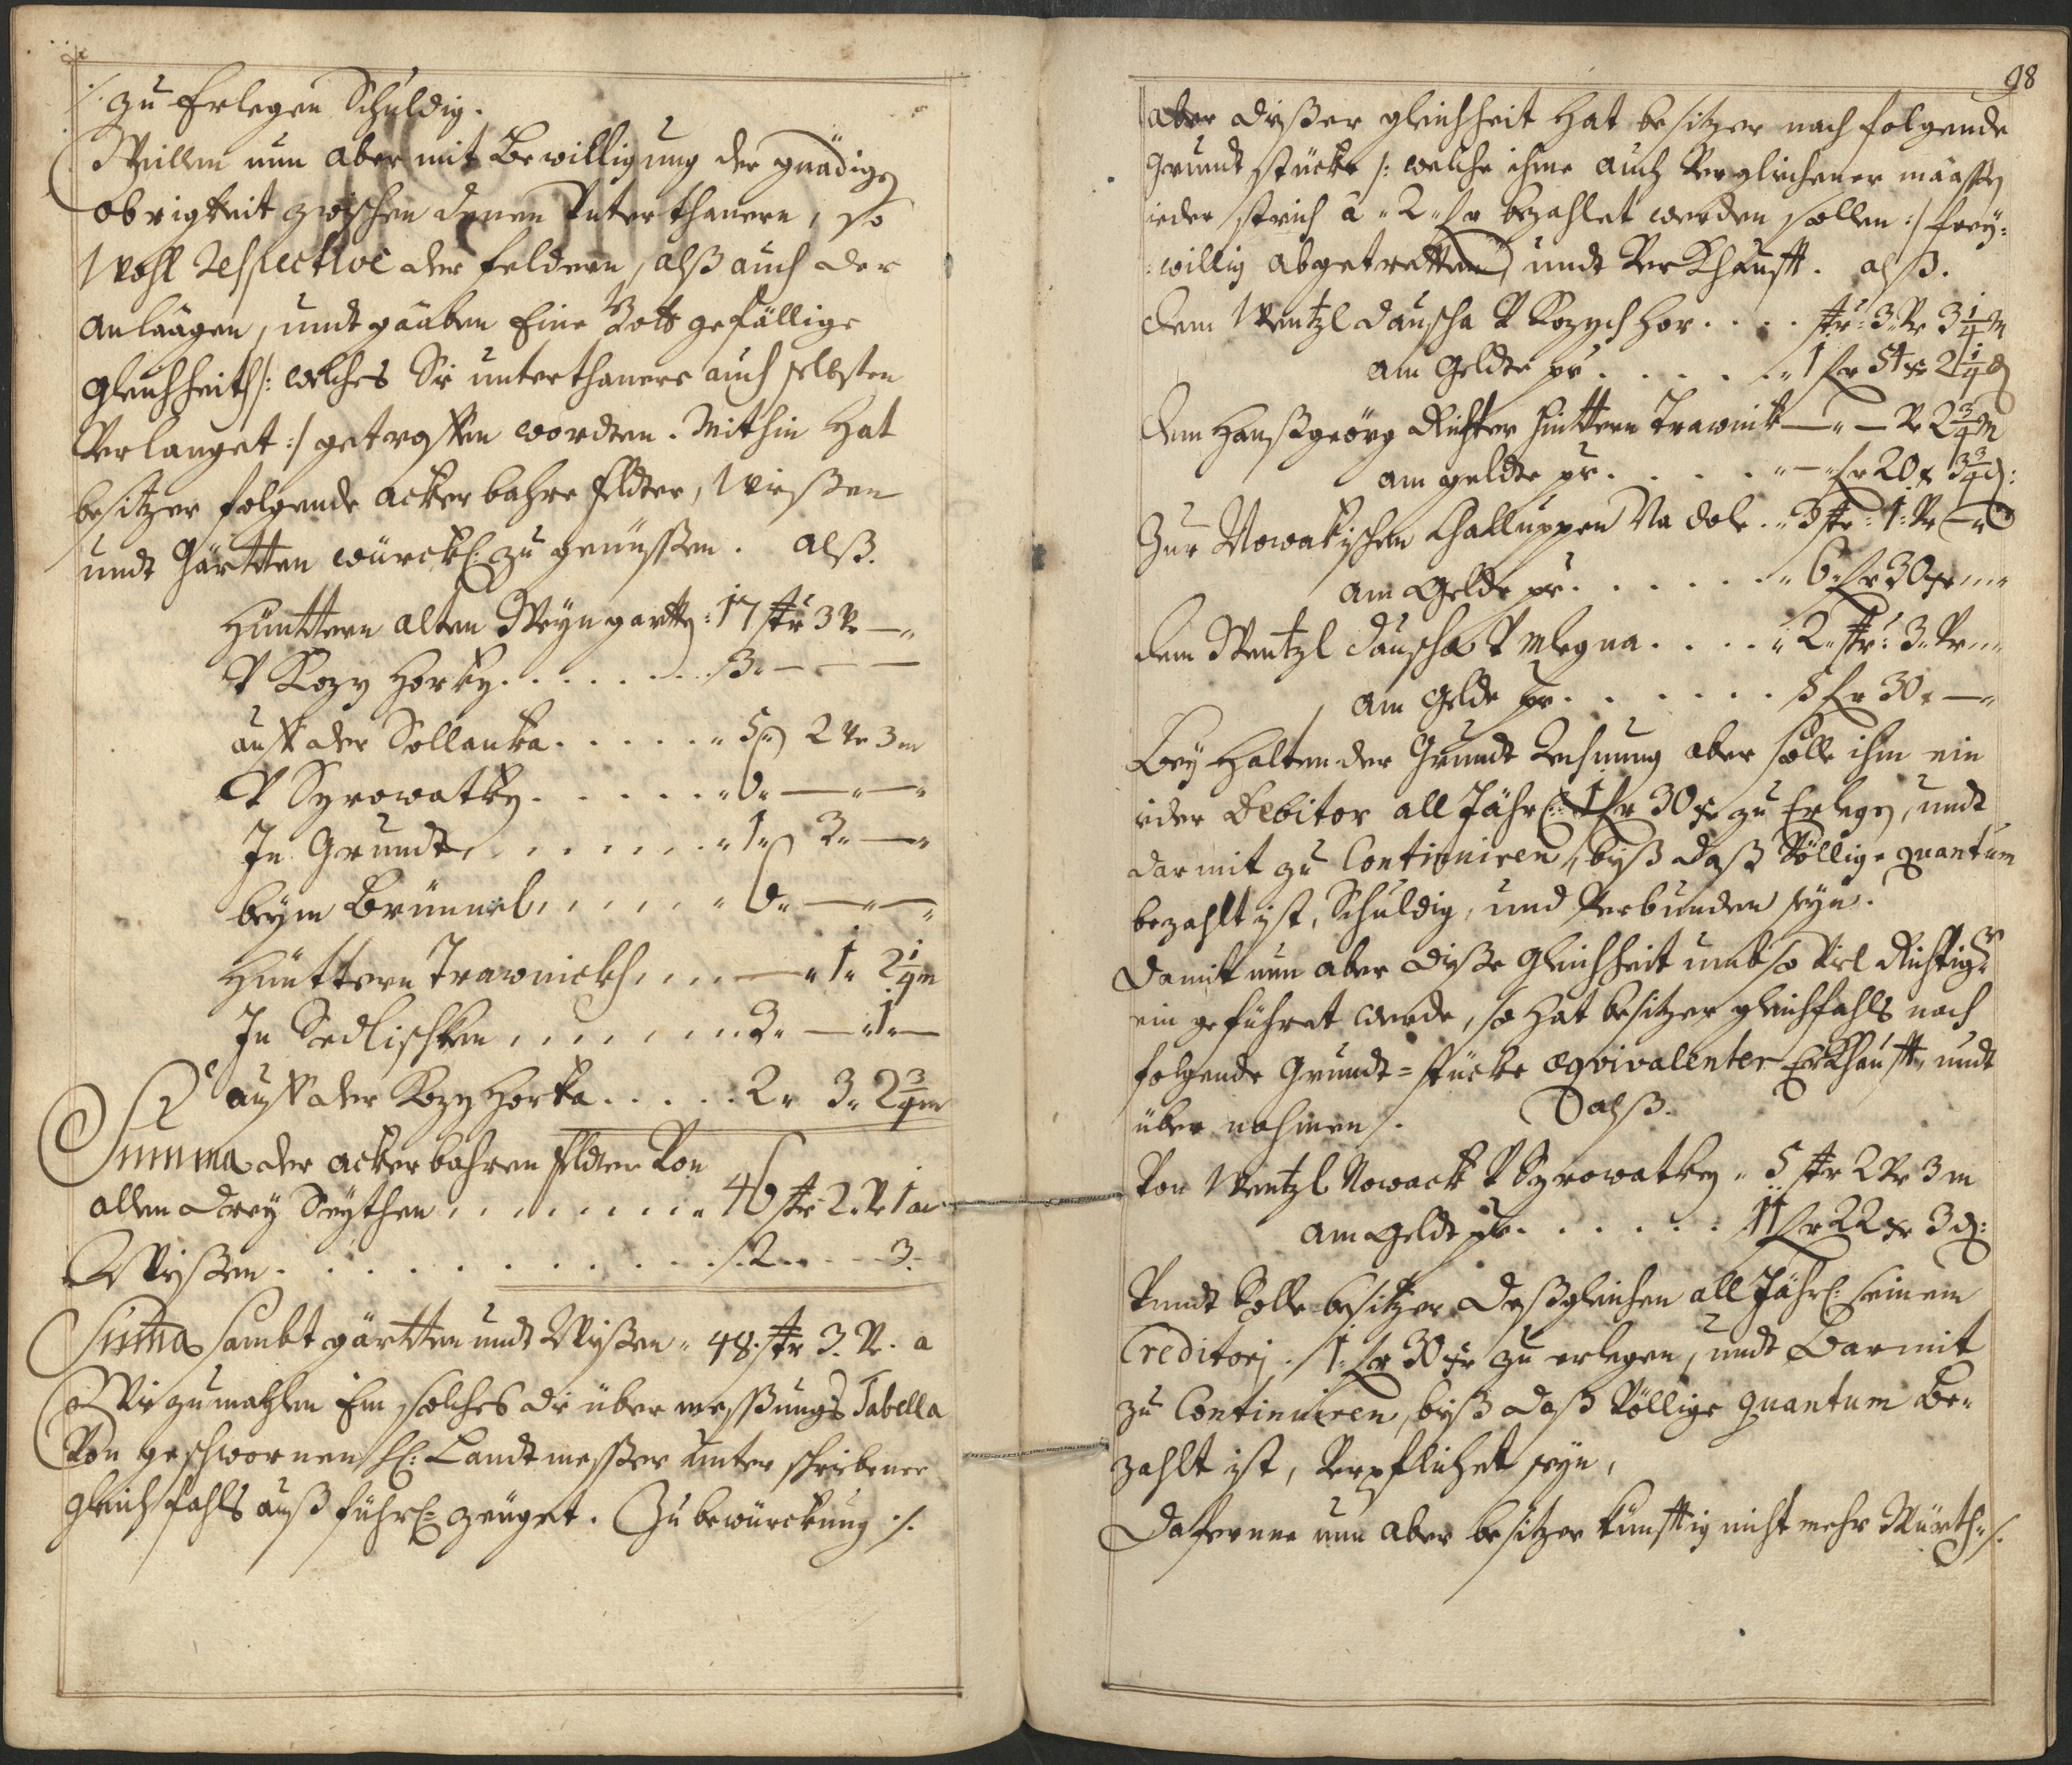 /. zu Erlegen Schuldig.
Weillen nun aber mit Bewilligung der gnädigen
obrigkeit zwischen denen Unterthanern, so
wohl respective der feldern, alß auch der
anlaagen, undt gaaben Eine Gott gefällige
gleichheith /: welches Sie unterthanere auch selbsten
Verlanget :/ getroffen wordten. Mithin hat
besitzer folgende ackerbahre feldter, Wießen
undt Gärtten würckl: zu genüssen. alß.
Hünttern alten Weyngartten: 17 str 3 V —"
V Kozy Horky. . . . . . . . ß. — — —
auff der Sollanka. . . . . . " 5 " 2 Ve 3 m
V Syrowatky. . . . . . . " 6. —"—"
In Grundt. . . . . . . . . " 1 " 3 " —"
beÿm Brünnel. . . . . . " 6. —"—"
Hünttern Trawnickh. . . . — " 1 " 2 1/4 m
In Sedlischken . . . . . . . . 3. — " 1 " —
auff der Kozy Horka. . . . . . 2 " 3 " 2 3/4 m
Summa der ackerbahren feldter Von
allen dreÿ Seÿthen . . . . . . . . . " 46 str 2 Ve 1 m
Wießen . . . . . . . . . . . . . . 2. . . . . 3.
Suma sambt gärtten undt Wießen " 48. str 3. V. a
Wie zumahlen Ein solches die über messungs Tabella
Von geschwornen H: Landtmesser unter schriebener
gleichfahls außführl: zeuget. Zu bewürckung ./.
98
aber dießer gleichheit hat besitzer nach folgende
Grundt stücke /: welche ihme auch Verglichener maassen
ieder strich a " 2 " fr bezahlet werden sollen :/ freÿ:
:willig abgetretten, undt Verkhaufft. alß.
dem Wentzl Dauscha V Kozych Hor. . . . str: 3 Ve 3 1/4 m
am Geldte pr. . . . . . " 1 fr 54 xr 2 1/4 d
dem Hanßgeörg Richter hinttern Trawnik — " — Ve 2 3/4 m
am geldte pr. . . . . " — " fr 20 x 3 3/4 d:
Zur Nowakischen Challuppen Na dole. " 3 str: 1: Ve — "
am Gelde pr. . . . . . . " 6 " fr 30 xr " " "
dem Wentzl Dauscha V Mlegna. . . . " 2 " str: 3 " Ve " "
am Gelde pr. . . . . . . 5 fr 30 x —"
Beÿ Halten der Grundt Rechnung aber solle ihm ein
ieder Debitor all Jährl: 1 fr 30 xr zu Erlegen, undt
darmit zu Continuiren, biß daß Völlige quantum
bezahlt ist, Schuldig, und Verbunden seÿn.
Damit nun aber dieße gleichheit umb so Viel Richtiger
ein geführet werde, so hat besitzer gleichfahls nach
folgende Grundt= stücke aeqvivalenter Erkhaufft undt
über nohmen /. alß.
Von Wentzl Nowack V Syrowatky " 5 str 2 Ve 3 m
am geldt pr. . . . . . . 11 fr 22 xr 3 d:
Vundt solle besitzer deßgleichen all Jährl: seinem
Creditori . 1 " fr 30 xr zu erlegen, undt darmit
zu Continuiren, biß daß Völlige quantum be=
zahlt ist, Verpflichet seÿn,
Daferne nun aber besitzer künfftig nicht mehr Würth= /.